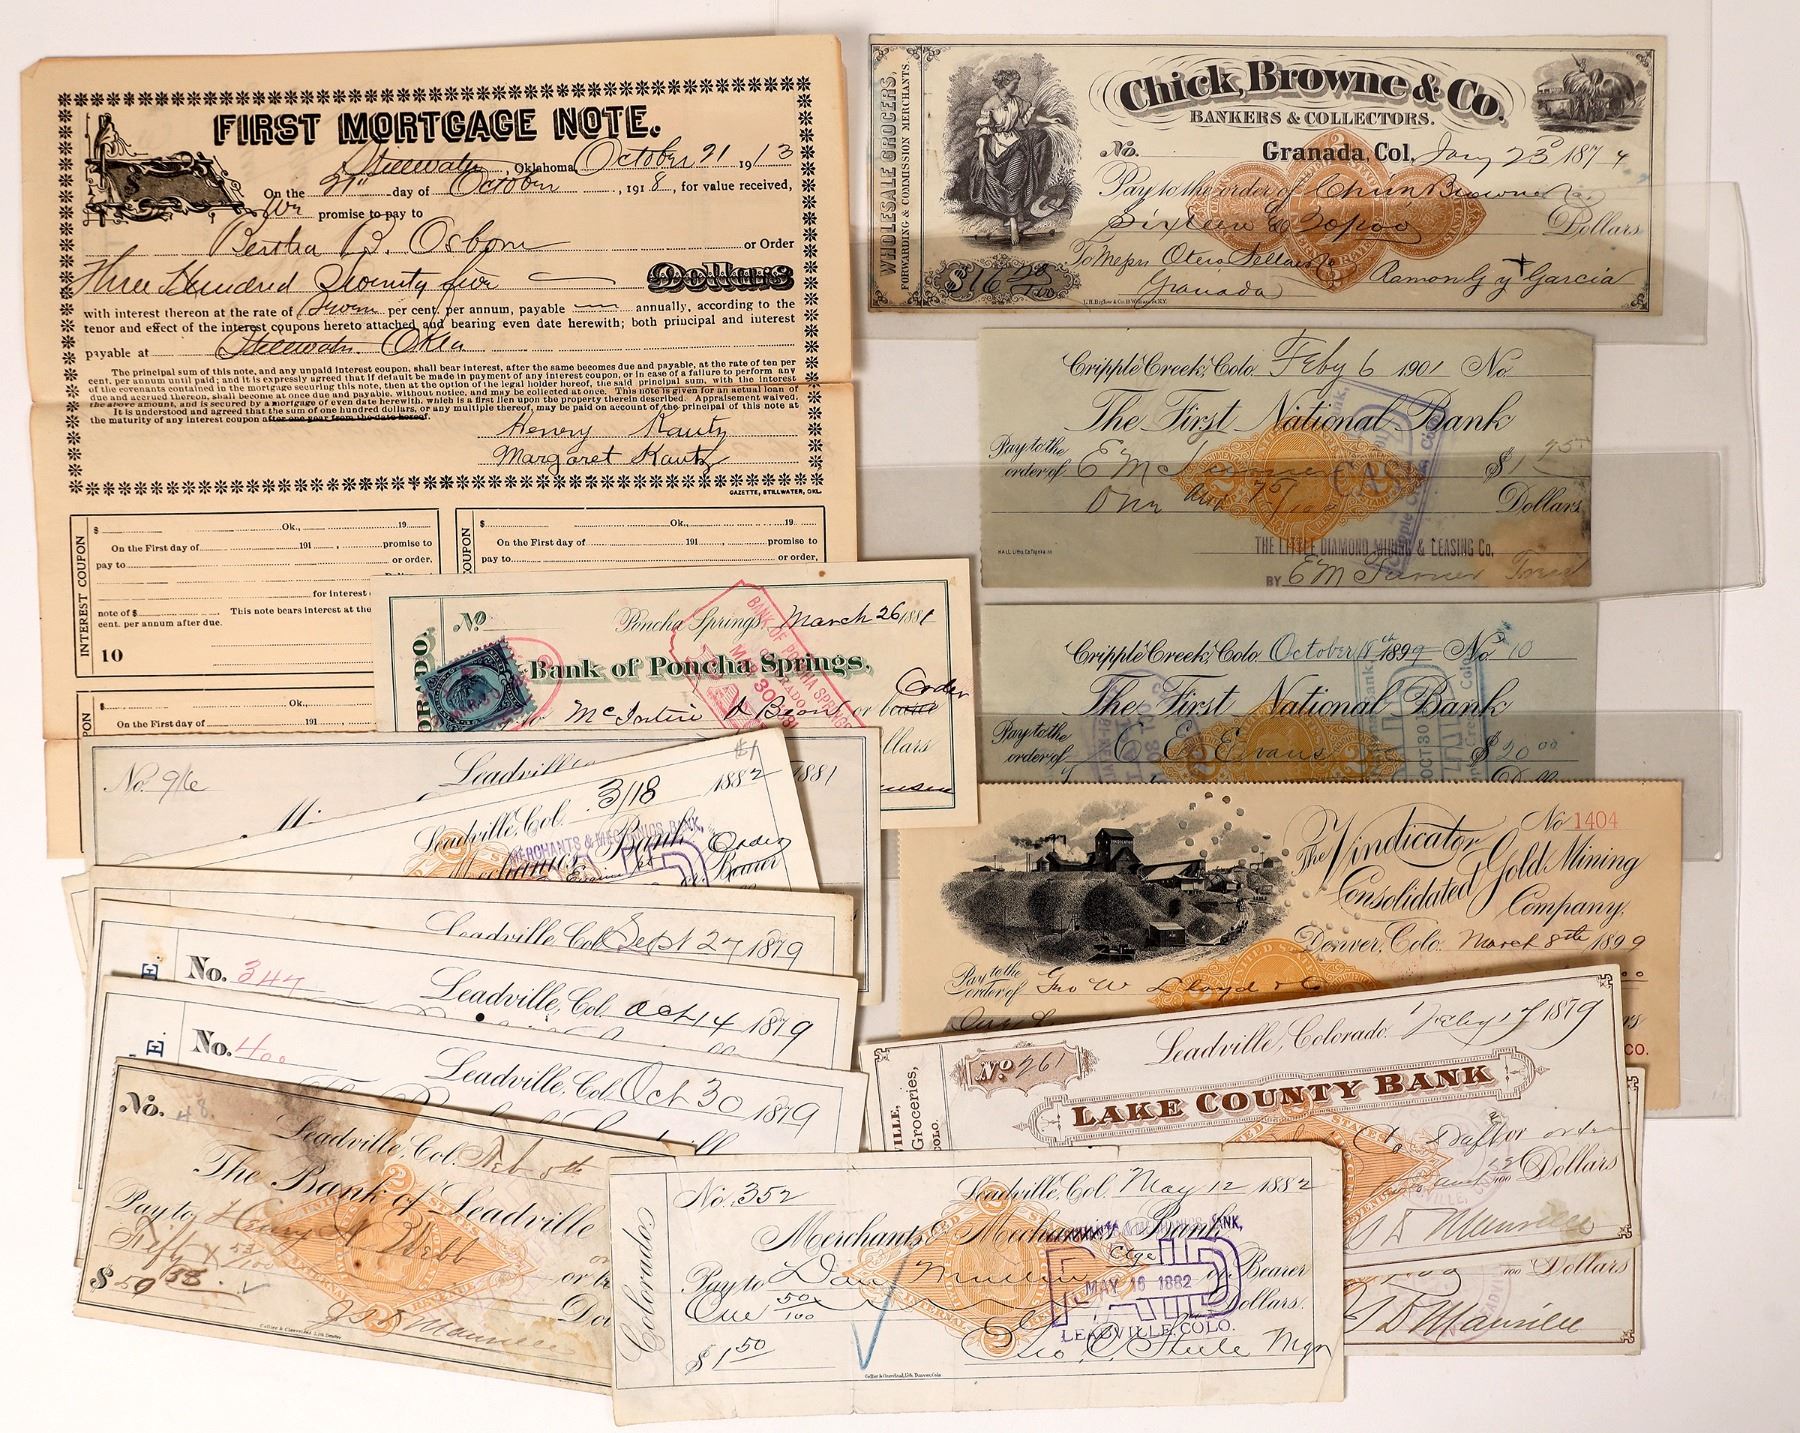 FIRST MORTGAGE NOTE.
Stillwater, Oklahoma October 21 1913
On the 21st day of October, 1918, for value received,
We promise to pay to
Bertha B. Osborn or Order
Three Hundred Seventy five Dollars
with interest thereon at the rate of Seven per cent. per annum, payable annually, according to the
tenor and effect of the interest coupons hereto attached and bearing even date herewith; both principal and interest
payable at Stillwater Okla
The principal sum of this note, and any unpaid interest coupon, shall bear interest, after the same becomes due and payable, at the rate of ten per
cent. per annum until paid; and it is expressly agreed that if default be made in payment of any interest coupon, or in case of a failure to perform any
of the covenants contained in the mortgage securing this note, then at the option of the legal holder hereof, the said principal sum, with the interest
due and accrued thereon, shall become at once due and payable, without notice, and may be collected at once. This note is given for an actual loan of
the above amount, and is secured by a mortgage of even date herewith, which is a first lien upon the property therein described. Appraisement waived.
It is understood and agreed that the sum of one hundred dollars, or any multiple thereof, may be paid on account of the principal of this note at
the maturity of any interest coupon after one year from the date hereof.
Henry Kautz
Margaret Kautz
GAZETTE, STILLWATER, OKL.
INTEREST COUPON
$ Ok., 19
On the First day of 191 , promise to
pay to or order,
for interest
note of $ This note bears interest at the
cent. per annum after due.
10
COUPON
$ Ok., 19
On the First day of 191 promise to
pay to or order,
Ok.,
On the First day of 191
WHOLESALE GROCERS,
FORWARDING & COMMISSION MERCHANTS.
Chick, Browne & Co.
BANKERS & COLLECTORS.
No. Granada, Col. Jany 23d 1874
Pay to the order of Chick Browne & Co
Sixteen & Dollars
$16
To Messrs Otero Sellar & Co
Granada
Ramon G y Garcia
Cripple Creek, Colo. Feby 6 1901 No
The First National Bank
Pay to the
order of E M Turner $1 75
One and 75/100 Dollars
THE LITTLE DIAMOND MINING & LEASING Co.
BY E M Turner Treas
Cripple Creek, Colo. October 18th 1899 No 10
The First National Bank
Pay to the
order of C E Evans $20 00
No Poncha Springs, March 26 1881
Bank of Poncha Springs,
McIntire & or Order
BANK OF PONCHA SPRINGS
No 1404
The Vindicator
Consolidated Gold Mining
Company,
Denver, Colo. March 8th 1899
Pay to the
order of Geo W Lloyd & Co
No. 916 Leadville 1881
Leadville, Col. 3/18 1882
MERCHANTS & MECHANICS BANK,
Order
Bearer
Leadville Col Sept 27 1879
No. 347 Leadville, Col. Oct 14 1879
No. 400 Leadville, Col. Oct 30 1879
No. 48
Leadville, Col. Feb 5th
The Bank of Leadville
Pay to Henry H Webb
Fifty & 53/100
$50 53
No 261 Leadville, Colorado. Feby 17 1879
LAKE COUNTY BANK
Groceries,
COLO.
Dollars
Dollars
Colorado
No. 352 Leadville, Col. May 12 1882
Merchants & Mechanics Bank
MERCHANTS & MECHANICS BANK,
Pay to Dan or Bearer
One 50/100 Dollars.
PAID
MAY 16 1882
LEADVILLE, COLO.
$1 50
Geo. C. Steele Mgr